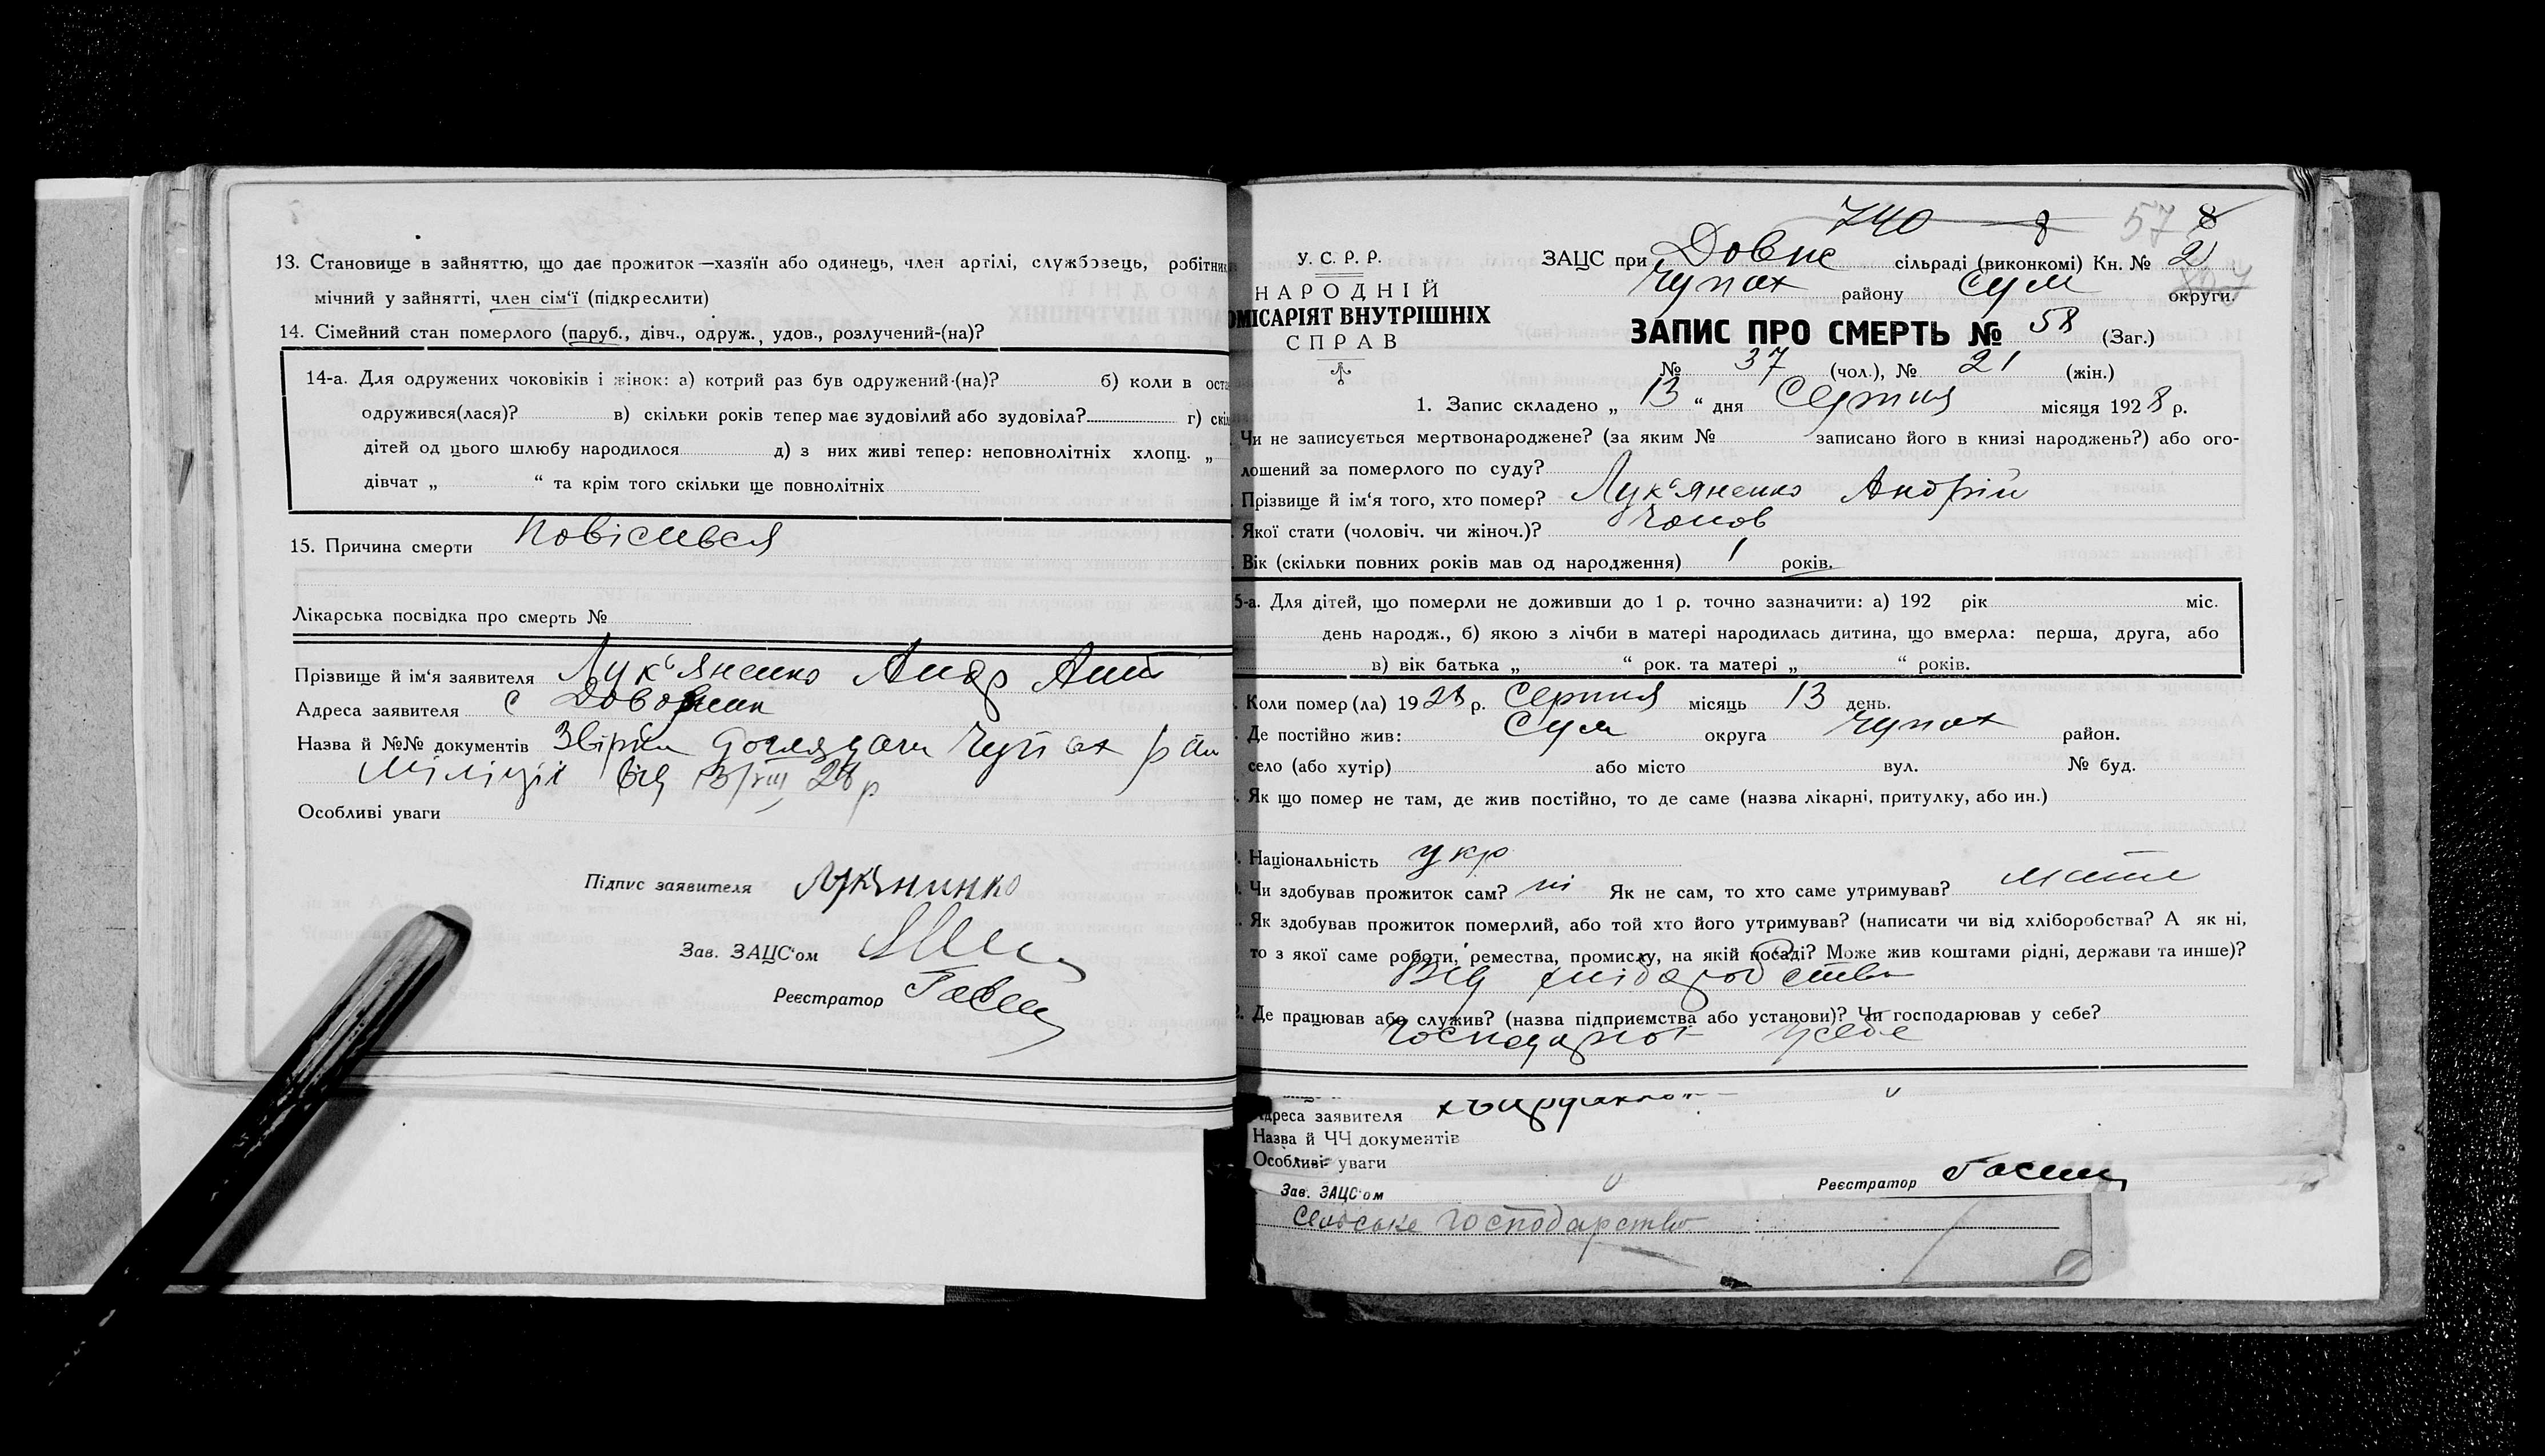 13. Становище в зайняттю, що дає прожиток—хазяїн або одинець, член артілі, службовець, робітник
мічний у зайнятті, член сім'ї (підкреслити)
14. Сімейний стан померлого (паруб., дівч., одруж., удов., розлучений-(на)?
14-а. Для одружених чоковіків і жінок: а) котрий раз був одружений-(на)? б) коли в оста
одружився(лася)? в) скільки років тепер має зудовілий або зудовіла? г) скіл
дітей од цього шлюбу народилося д) з них живі тепер: неповнолітніх хлопц. „
дівчат „ “ та крім того скільки ще повнолітніх
15. Причина смерти Повісився
Лікарська посвідка про смерть №
Прізвище й ім'я заявителя Лук'яненко Андр Ант
Адреса заявителя с
Назва й №№ документів Чупах рай
Міліції від 13/VIII 28 р
Особливі уваги
Підпис заявителя Лукянинко
Зав. ЗАЦС'ом
Реєстратор
740 8 57 8
У. С. Р. Р.
НАРОДНІЙ
ОМІСАРІЯТ ВНУТРІШНІХ
СПРАВ
ЗАЦС при Довж сільраді (виконкомі) Кн. № 2
Чупах району Сум округи.
ЗАПИС ПРО СМЕРТЬ № 58 (Заг.)
№ 37 (чол.), № 21 (жін.)
1. Запис складено „ 13 “ дня Серпня місяця 1928 р.
Чи не записується мертвонароджене? (за яким № записано його в книзі народжень?) або ого-
лошений за померлого по суду?
Прізвище й ім'я того, хто помер? Лук'яненко Андрій
Якої стати (чоловіч. чи жіноч.)? Чолов
Вік (скільки повних років мав од народження) 1 років.
5-а. Для дітей, що померли не доживши до 1 р. точно зазначити: а) 192 рік міс.
день народж., б) якою з лічби в матері народилась дитина, що вмерла: перша, друга, або
в) вік батька „ “ рок. та матері „ “ років.
Коли помер(ла) 1928 р. Серпня місяць 13 день.
Де постійно жив: Сум округа Чупах район.
село (або хутір) або місто вул. № буд.
Як що помер не там, де жив постійно, то де саме (назва лікарні, притулку, або ин.)
Національність укр
Чи здобував прожиток сам? ні Як не сам, то хто саме утримував? мати
Як здобував прожиток померлий, або той хто його утримував? (написати чи від хліборобства? А як ні,
то з якої саме роботи, ремества, промислу, на якій посаді? Може жив коштами рідні, держави та инше)?
Від хліборобства
Де працював або служив? (назва підприємства або установи)? Чи господарював у себе?
Господарює у себе
Адреса заявителя
Назва й ЧЧ документів
Особливі уваги
Зав. ЗАЦС'ом Реєстратор
Сельське господарство